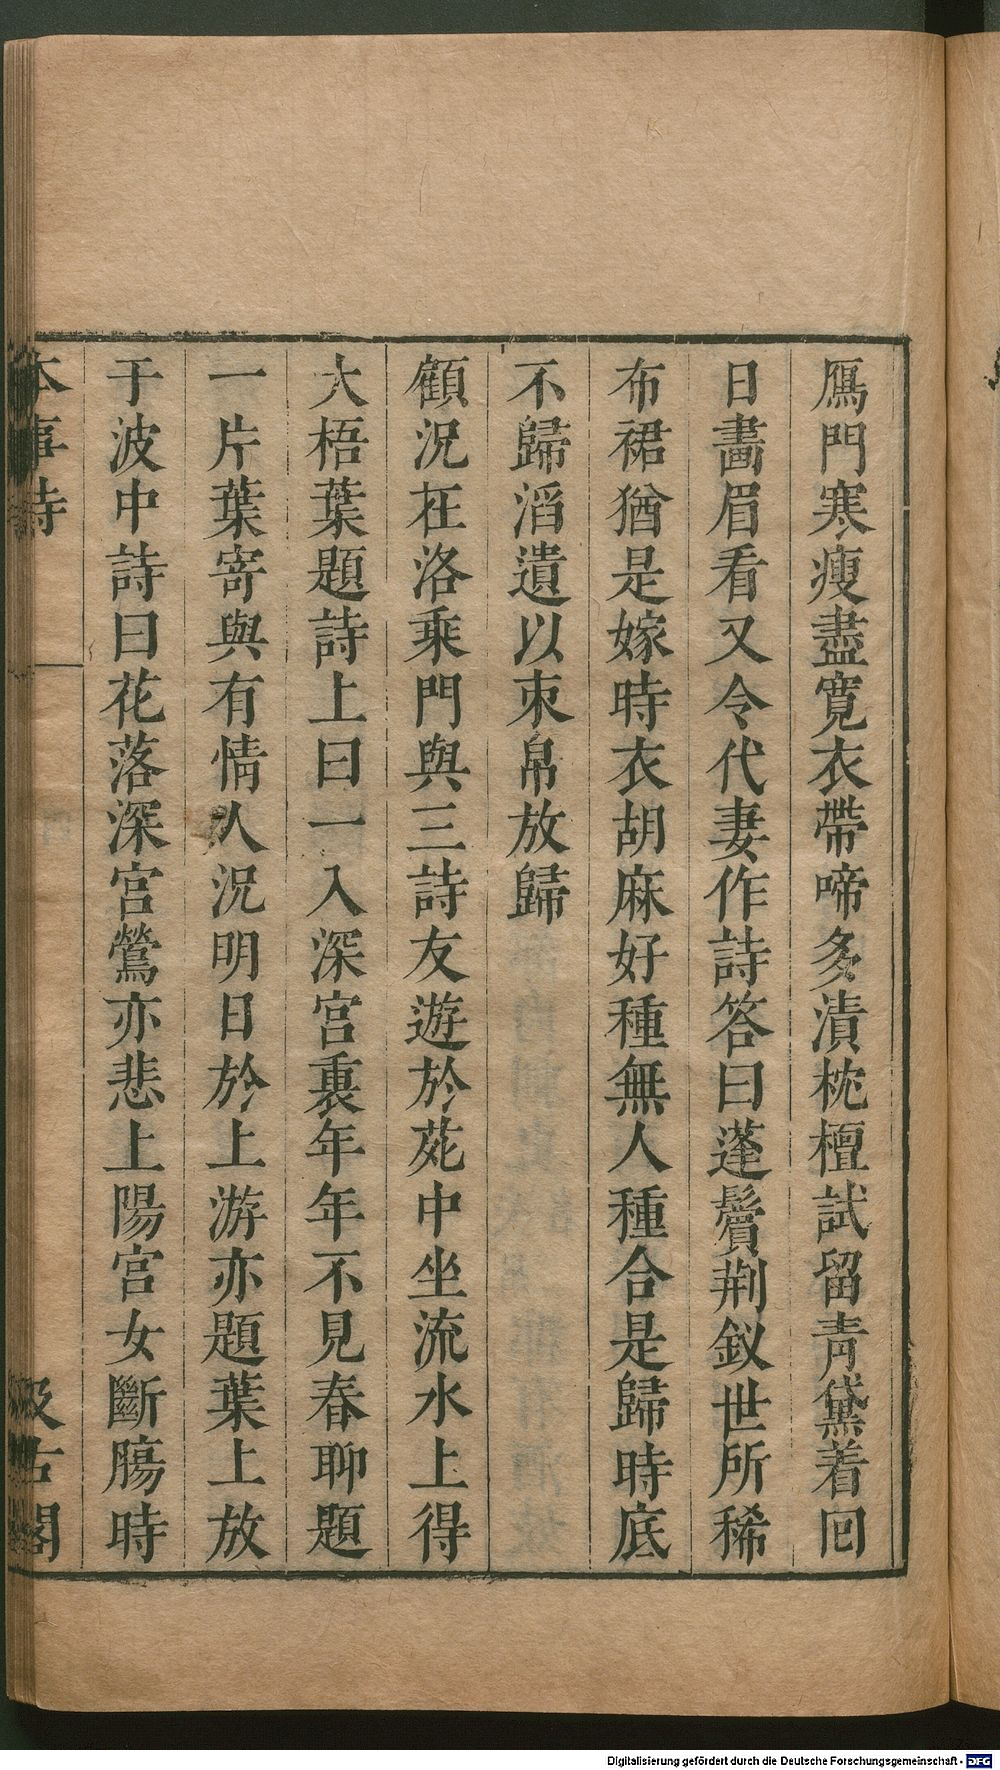 鴈門寒瘦盡寬衣帶啼多漬枕檀試留青黛着回
日畵眉看又令代妻作詩答曰蓬鬢荆釵世所稀
布裙猶是嫁時衣胡麻好種無人種合是歸時底
不歸滔遺以束帛放歸
顧況在洛乘門與三詩友遊於苑中坐流水上得
大梧葉題詩上曰一入深宮裏年年不見春聊題
一片葉寄與有情人況明日於上游亦題葉上放
于波中詩曰花落深宮鶯亦悲上陽宮女斷腸時
本事詩
汲古閣
Digitalisierung gefördert durch die Deutsche Forschungsgemeinschaft - DFG